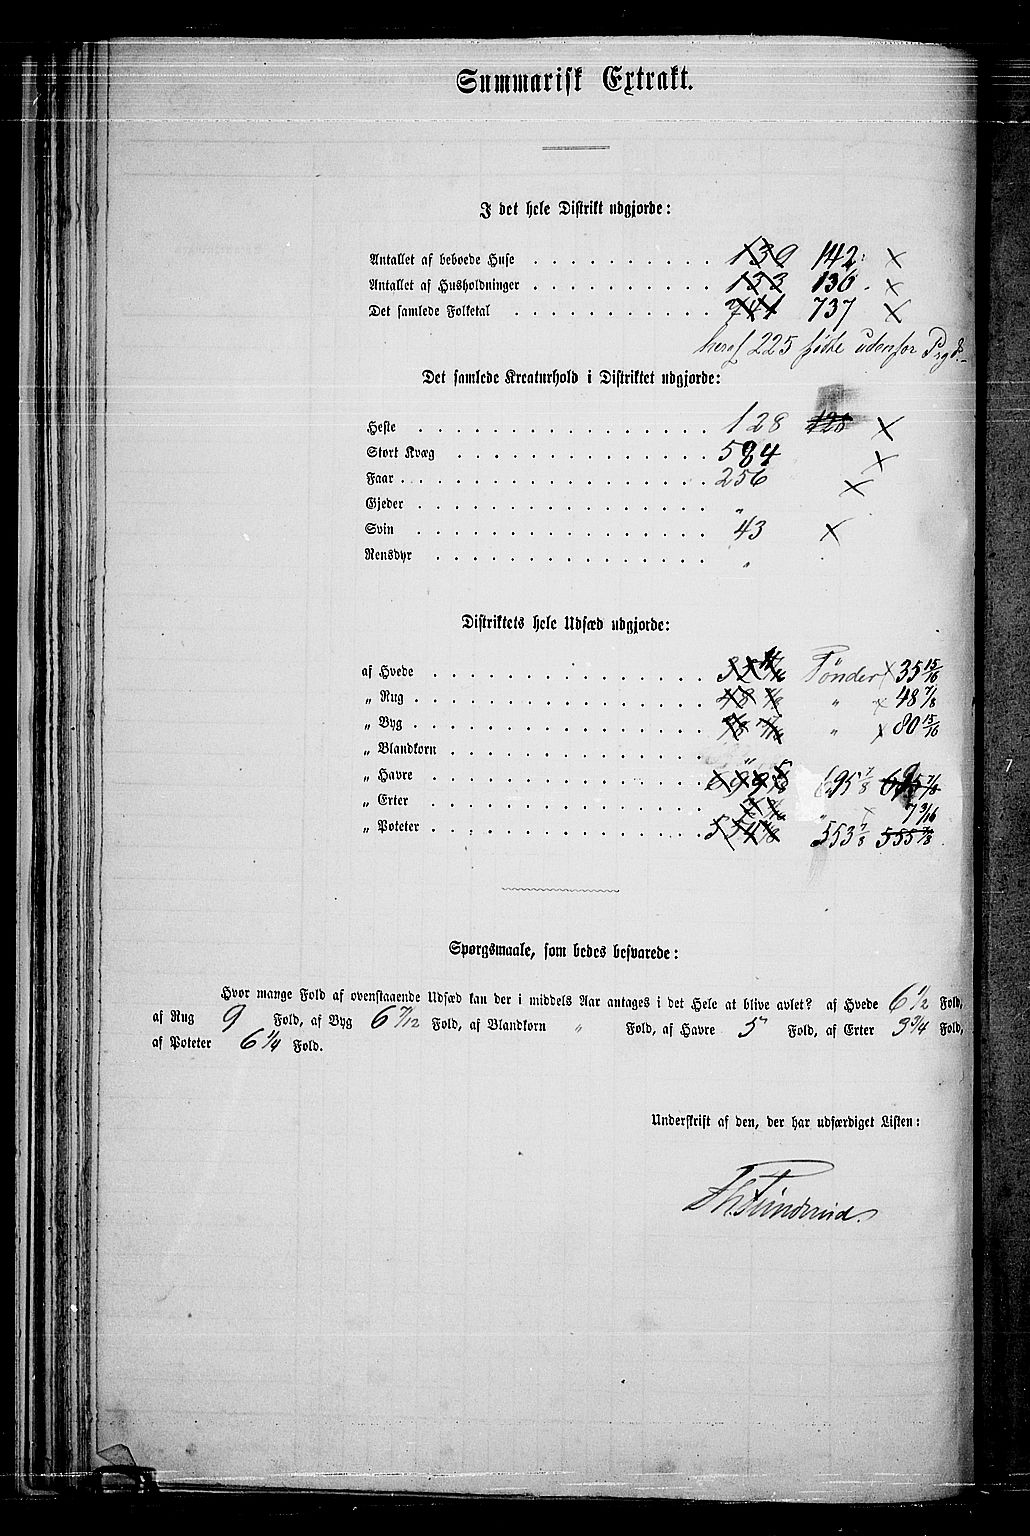 Summarisk Extrakt.
I det hele Distrikt udgjorde:
Antallet af beboede Huse 139 142 ×
Antallet af Husholdninger 133 136 ×
Det samlede Folketal 741 737 ×
heraf 225 fødte udenfor Prgd.
Det samlede Kreaturhold i Distriktet udgjorde:
Heste 128 128 ×
Stort Kvæg 584 ×
Faar 256 ×
Gjeder "
Svin 43 ×
Rensdyr "
Distriktets hele Udsæd udgjorde:
af Hvede Tønder × 35 15/16
„ Rug 48 7/8 " × 48 7/8
„ Byg " × 80 15/16
„ Blandkorn "
„ Havre 695 7/8
„ Erter " × 7 3/16
„ Poteter 554 553 7/8 555 7/8
Spørgsmaale, som bedes besvarede:
Hvor mange Fold af ovenstaaende Udsæd kan der i middels Aar antages i det Hele at blive avlet? af Hvede 6 1/2 Fold,
af Rug 9 Fold, af Byg 6 7/12 Fold, af Blandkorn " Fold, af Havre 5 Fold, af Erter 3 3/4 Fold,
af Poteter 6 1/4 Fold.
Underskrift af den, der har udfærdiget Listen:
7